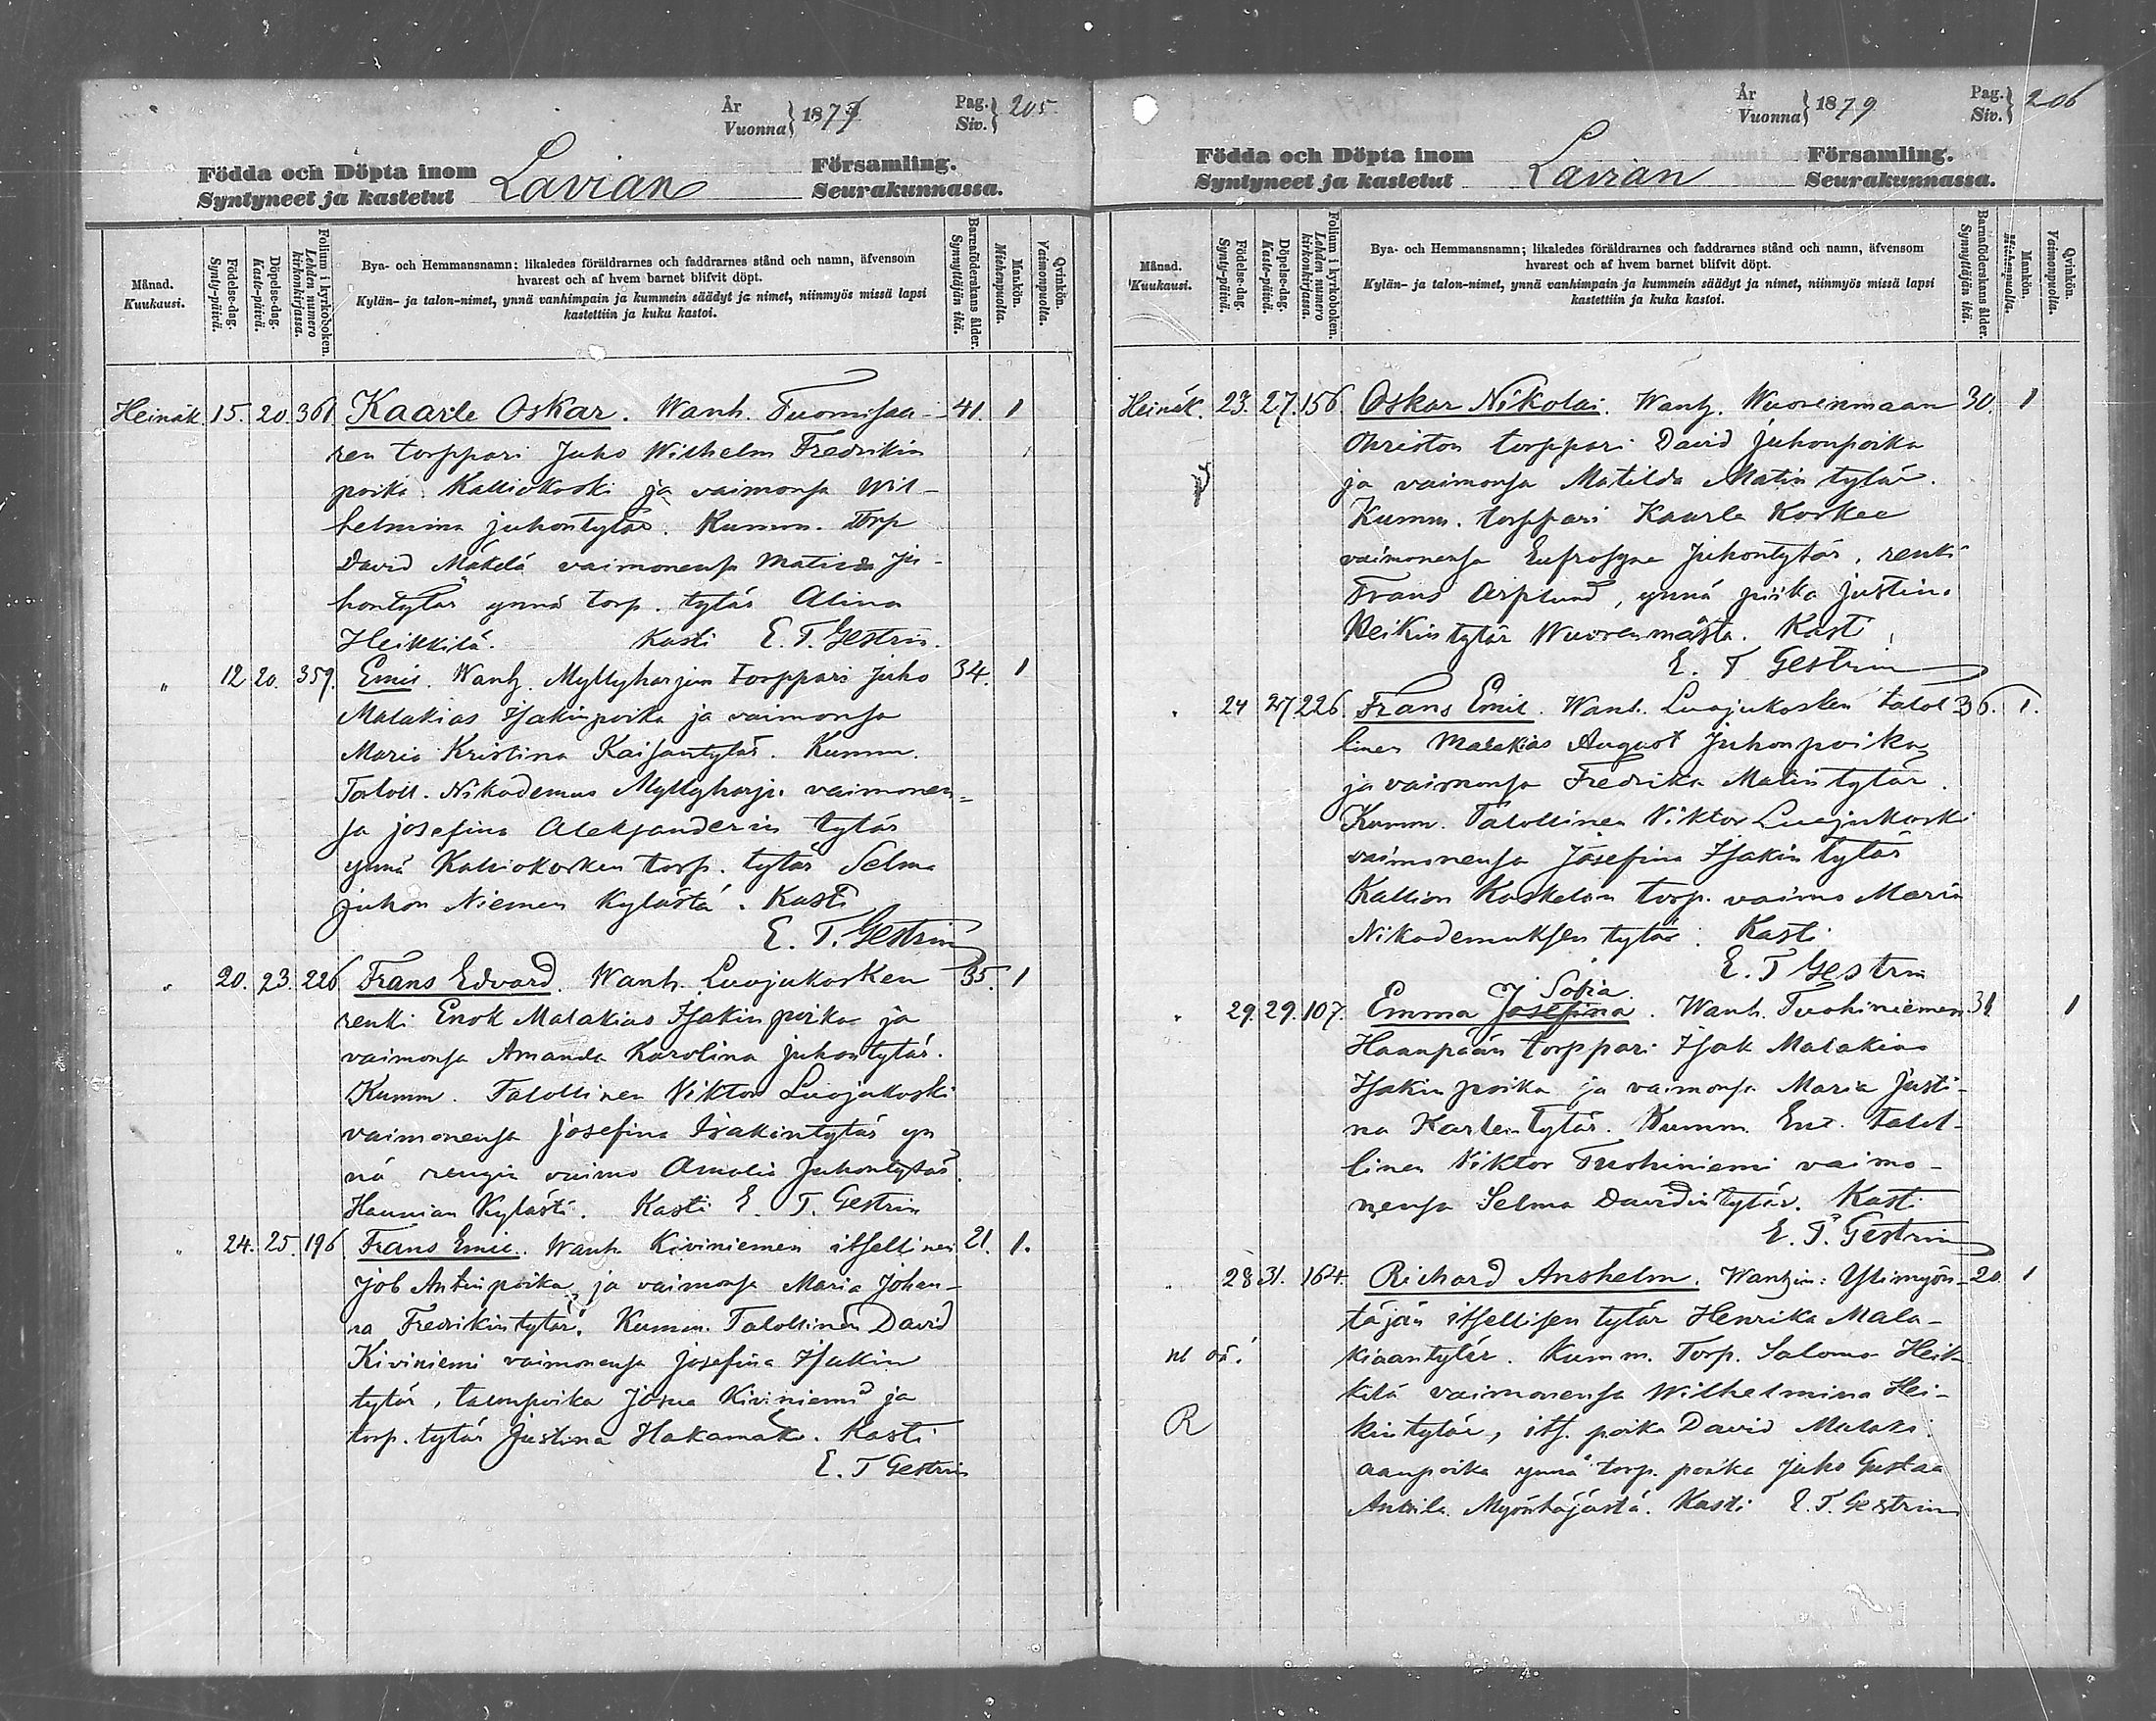 År
Vuonna } 1879 Pag.
Siv. } 205.
Födda och Döpta inom Lavian Församling.
Syntyneet ja kastetut Seurakunnassa.
Månad.
Kuukausi.
Födelse-dag.
Synty-päivä.
Döpelse-dag.
Kaste-päivä.
Folium i kyrkoboken.
Lehden numero
kirkonkirjassa.
Bya- och Hemmansnamn; likaledes föräldrarnes och faddrarnes stånd och namn, äfvensom
hvarest och af hvem barnet blifvit döpt.
Kylän- ja talon-nimet, ynnä vanhimpain ja kummein säädyt ja nimet, niinmyös missä lapsi
kastettiin ja kuka kastoi.
Barnaföderskans ålder.
Synnyttäjän ikä.
Mankön.
Miehenpuolta.
Qvinkön.
Vaimonpuolta.
Heinäk. 15. 20. 361 Kaarle Oskar. Wanh. Tuomisaa- 41. 1
ren torppari Juho Wilhelm Fredrikin
poika Kalliokoski ja vaimonsa Wil-
helmina Juhontytär. Kumm. Torp
David Mäkelä vaimonensa Matilda Ju-
hontytär ynnä torp. tytär Alina
Heikkilä. Kasti E. T. Gestrin.
" 12 20. 359. Emil. Wanh. Myllyharjun torppari Juho 34. 1
Malakias Isakinpoika ja vaimonsa
Maria Kristina Kaisantytär. Kumm.
Taloll. Nikodemus Myllyharju vaimonen=
sa Josefina Aleksanderin tytär
ynnä Kalliokosken torp. tytär Selma
Juhon Niemen kylästä. Kasti
E. T. Gestrin
" 20. 23. 226 Frans Edvard. Wanh. Luojukosken 35. 1
renki Enok Malakias Isakinpoika ja
vaimonsa Amanda Karolina Juhontytär.
Kumm. Talollinen Viktor Luojukoski
vaimonensa Josefina Isakintytär yn
nä rengin vaimo Amalia Juhontytär.
Haunian kylästä. Kasti E. T. Gestrin
" 24. 25. 196 Frans Emil. Wanh. Kiviniemen itsellinen 21. 1.
Job Antinpoika, ja vaimonsa Maria Johan-
na Fredrikintytär. Kumm. Talollinen David
Kiviniemi vaimonensa Josefina Isakin
tytär, talonpoika Josua Kiviniemi ja
torp. tytär Justina Hakamäki. Kasti
E. T Gestrin
År
Vuonna } 1879 Pag.
Siv. } 206
Födda och Döpta inom Lavian Församling.
Syntyneet ja kastetut Seurakunnassa.
Månad.
Kuukausi.
Födelse-dag.
Synty-päivä.
Döpelse-dag.
Kaste-päivä.
Folium i kyrkoboken.
Lehden numero
kirkonkirjassa.
Bya- och Hemmansnamn; likaledes föräldrarnes och faddrarnes stånd och namn, äfvensom
hvarest och af hvem barnet blifvit döpt.
Kylän- ja talon-nimet, ynnä vanhimpain ja kummein säädyt ja nimet, niinmyös missä lapsi
kastettiin ja kuka kastoi.
Barnaföderskans ålder.
Synnyttäjän ikä.
Mankön.
Miehenpuolta.
Qvinkön.
Vaimonpuolta.
Heinäk. 23. 27. 156 Oskar Nikolai. Wanh. Wuorenmaan 30. 1
torppari David Juhonpoika
ja vaimonsa Matilda Matin tytär.
Kumm. torppari Kaarle Korkee
vaimonensa Eufrosyne Juhontytär, renki
Frans Asplund, ynnä piika Justina
Heikintytär Wuorenmaasta. Kasti
E. T Gestrin
" 24 27 226. Frans Emil. Wanh. Luojukosken talol 36. 1.
linen Malakias August Juhonpoika
ja vaimonsa Fredrika Matin tytär.
Kumm. Talollinen Viktor Luojukoski
vaimonensa Josefina Isakin tytär
Kallion Koskelon torp. vaimo Maria
Nikodemuksen tytär. Kasti
E. T Gestrin
Sofia.
" 29. 29. 107. Emma Josefina. Wanh. Tuohiniemen 31 1
Haanpään torppari Isak Malakias
Isakin poika ja vaimonsa Maria Justi-
na Karlentytär. Kumm. Ent. talol-
linen Viktor Tuohiniemi vaimo-
nensa Selma Davidin tytär. Kasti
E. T. Gestrin
" 28 31. 164. Richard Anshelm. Wanhin: Ylimyön- 20. 1
täjän itsellisen tytär Henrika Mala-
kiaantytär. Kumm. Torp. Salomo Heik-
kilä vaimonensa Wilhelmina Hei-
R kintytär, its. poika David Malaki-
aanpoika ynnä torp. poika Juho Gustaa
Anttila Myöntäjästä. Kasti E. T. Gestrin